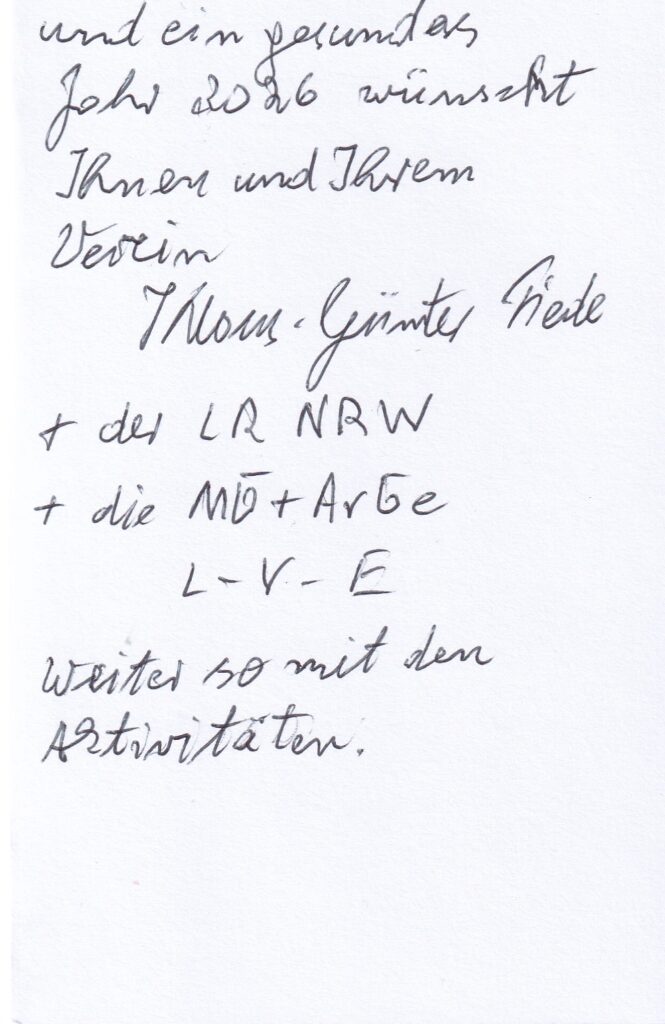 und ein gesundes
Jahr 2026 wünscht
Ihnen und Ihrem
Verein
Klaus-Günter
+ der LR NRW
+ die MG + ArGe
L - V - E
Weiter so mit den
Aktivitäten.